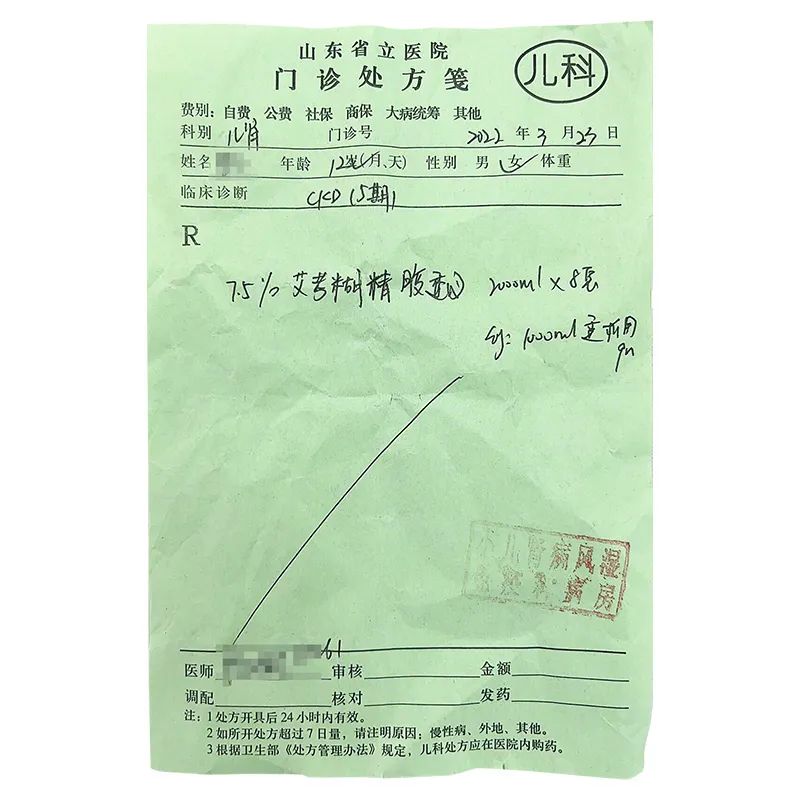 山东省立医院
儿科
门诊处方笺
费别：自费 公费 社保 商保 大病统筹 其他
科别 儿肾 门诊号 2022 年 3 月 23 日
姓名 年龄 12岁(月、天) 性别 男 女 体重
临床诊断 CKD (5期)
R
7.5% 艾考糊精腹透 2000ml × 8袋
1000ml
小儿肾病风湿
免疫科 病房
医师 审核 金额
调配 核对 发药
注：1 处方开具后 24 小时内有效。
2 如所开处方超过 7 日量，请注明原因；慢性病、外地、其他。
3 根据卫生部《处方管理办法》规定，儿科处方应在医院内购药。